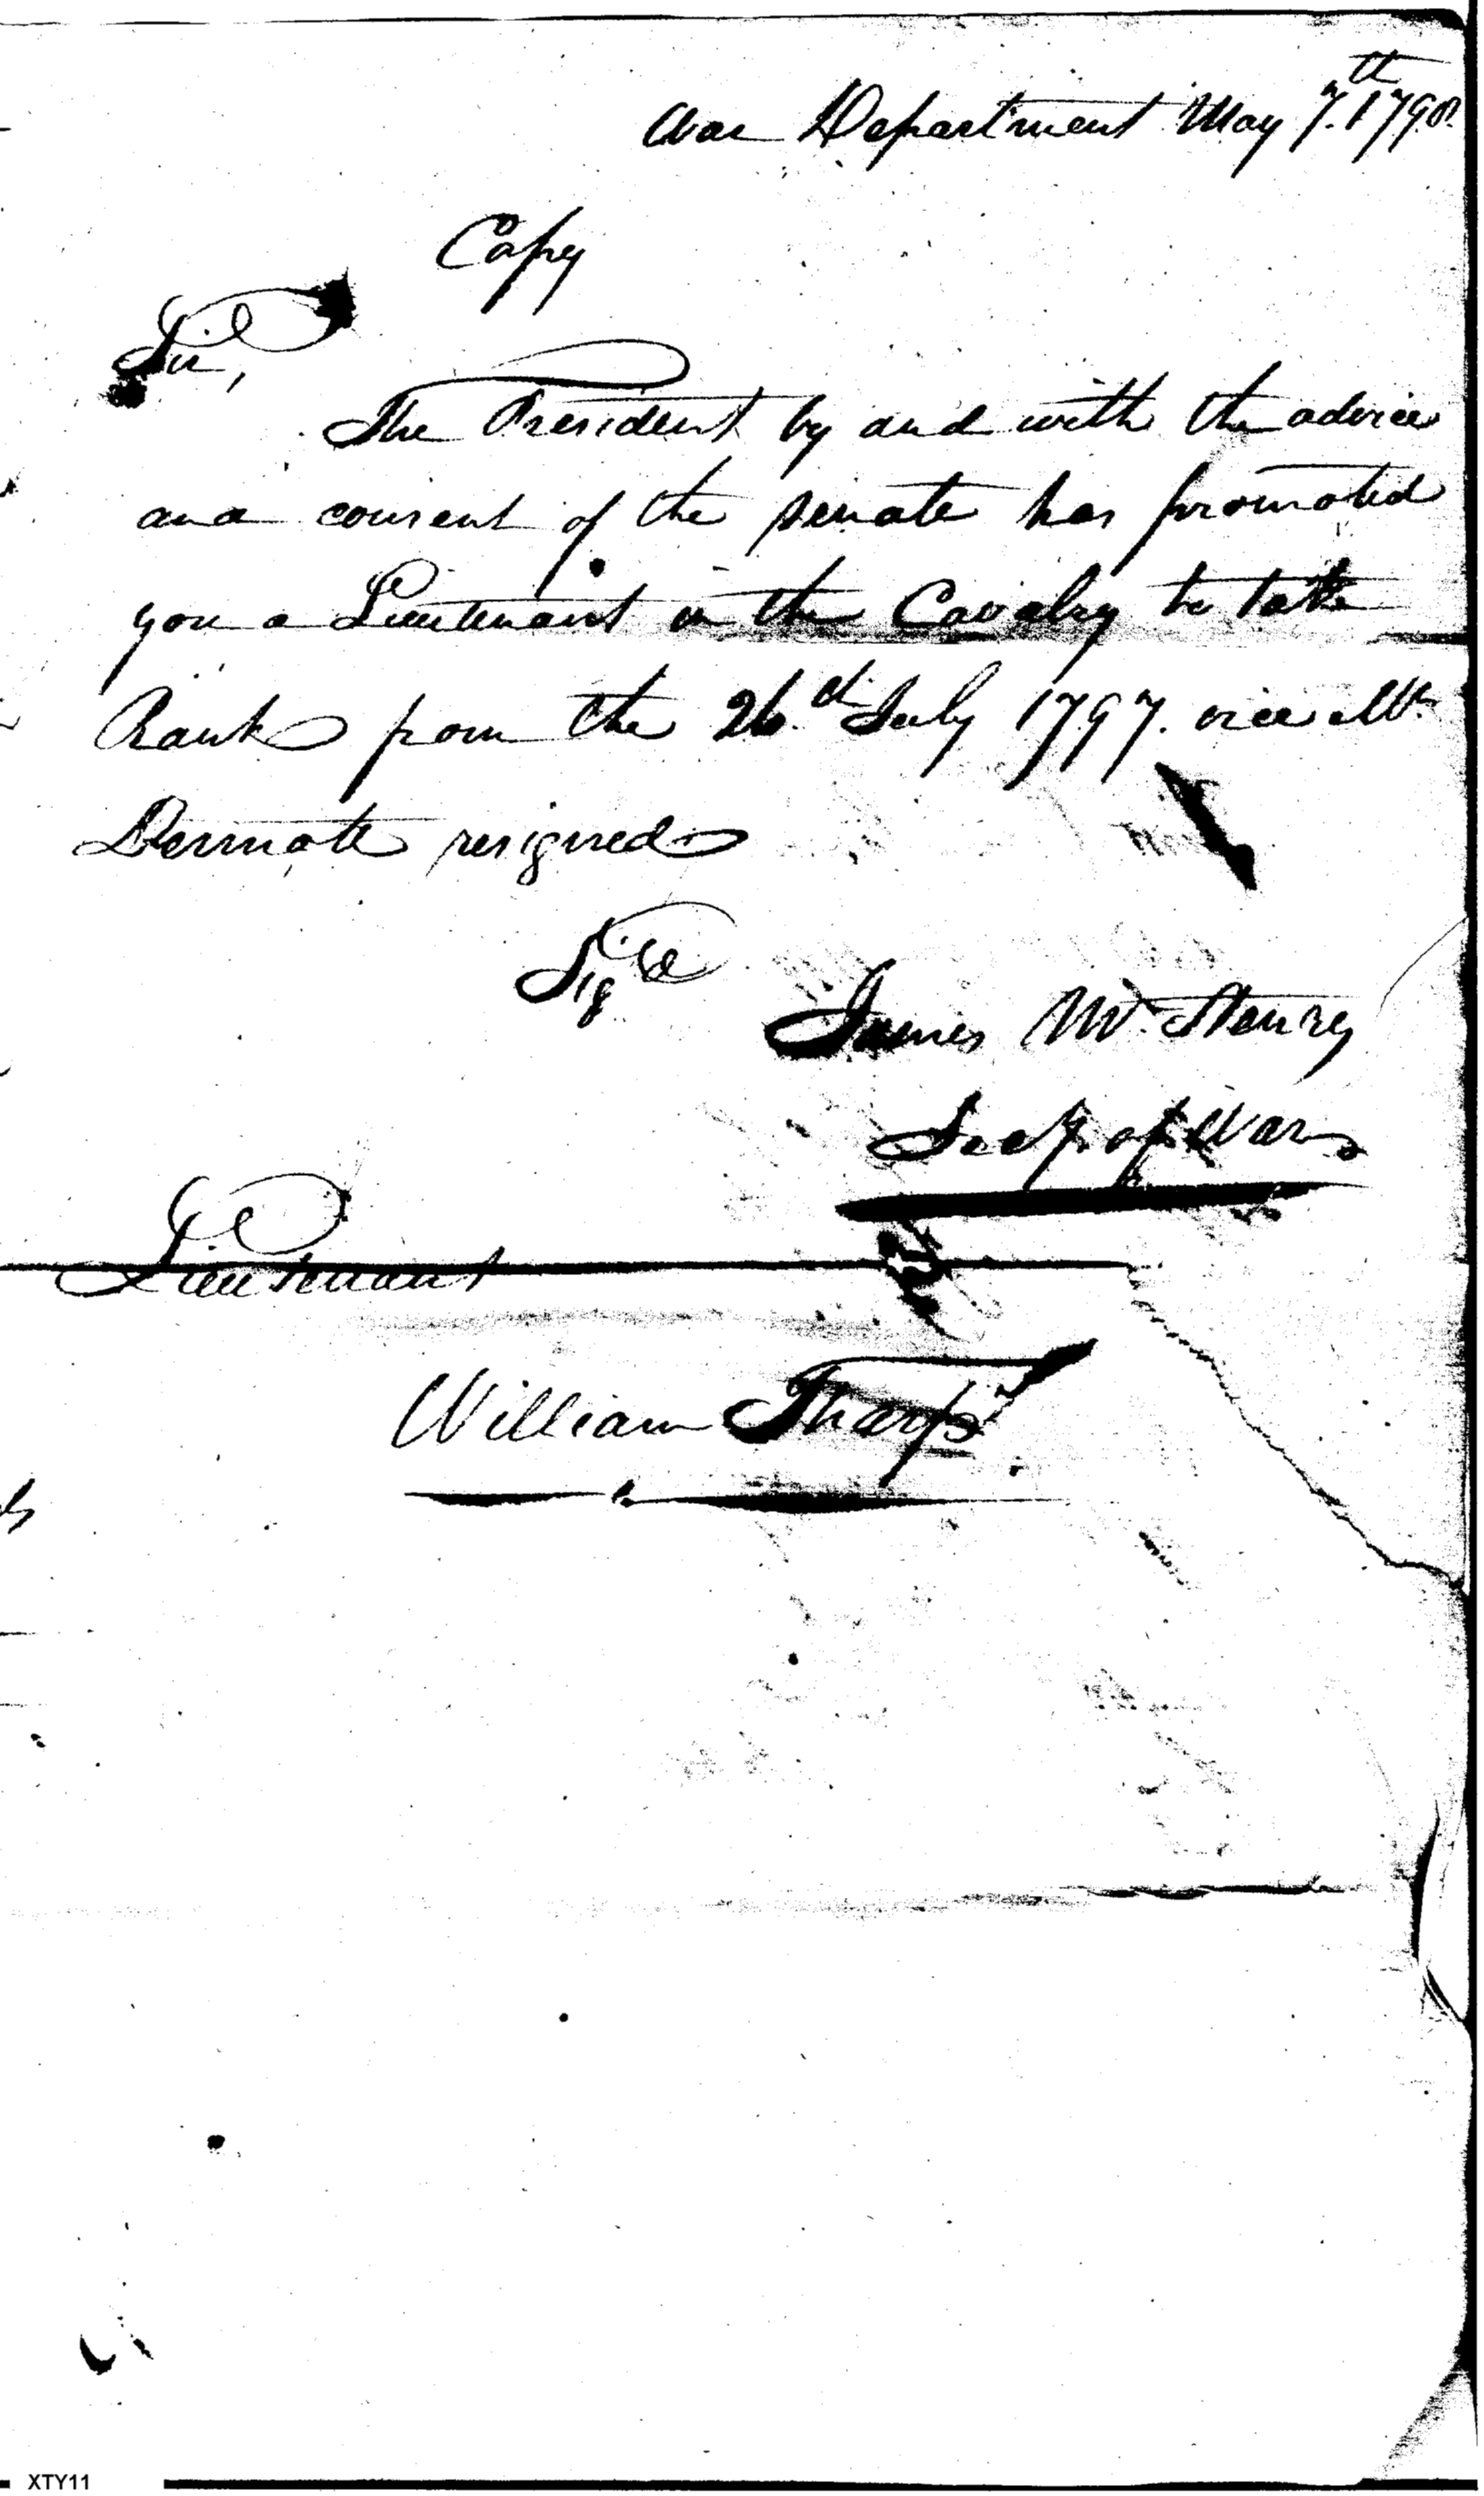 War Department May 7.th 1798.
Copy
Sir,
The President by and with the advice
and consent of the senate has promoted
you a Lieutenant in the Cavalry to take
Rank from the 26.th July 1797. vice Mc.
Dermote resigned
Sigd
James Mc. Henry
Secy. of War
Lieutenant
William Tharp
XTY11